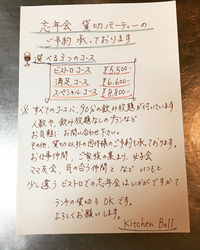 忘年会 貸切パーティーの
ご予約承っております
選べる3つのコース
ビストロコース ¥5,500-
満足コース ¥6,600-
スペシャルコース ¥8,800-
※すべてのコースに、90分の飲み放題が付いています
人数や、飲み放題なしのプランなど
お気軽にお問い合わせ下さい。
その他、貸切以外の団体様のご予約も承っております。
お仕事仲間、ご家族の集まり、女子会
ママ友会、気の合う仲間と などいつもと
少し違うビストロでの忘年会はいかがですか?
ランチの貸切もOKです。
よろしくお願いします。
Kitchen Bell